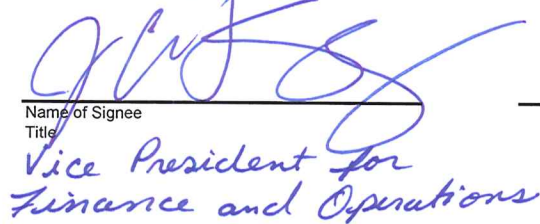 Name of Signee
Title
Vice President for
Finance and Operations